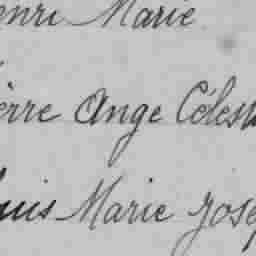 enri Marie
erre Ange Célest
uis Marie Jose